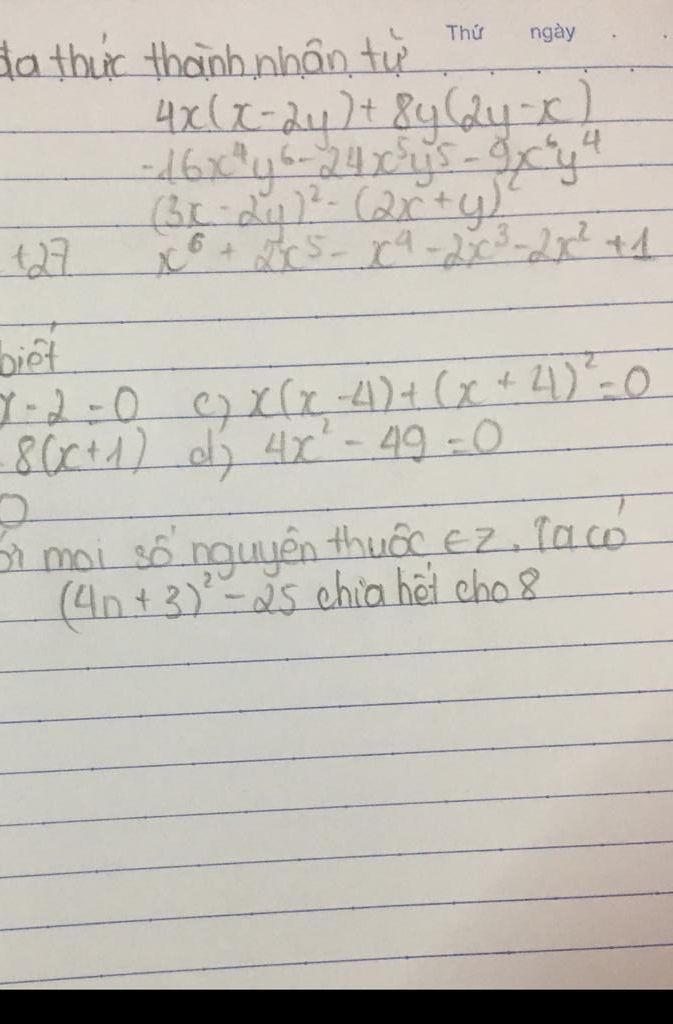 Thứ ngày . .
đa thức thành nhân tử
4x(x-2y)+8y(2y-x)
-16x⁴y⁶-24x⁵y⁵-9x⁶y⁴
(3x-2y)²-(2x+y)²
+27 x⁶+2x⁵-x⁴-2x³-2x²+1
biết
x-2=0 c) x(x-4)+(x+4)²=0
8(x+1) d) 4x²-49=0
0
ới mọi số nguyên thuộc ∈Z. Ta có
(4n+3)²-25 chia hết cho 8